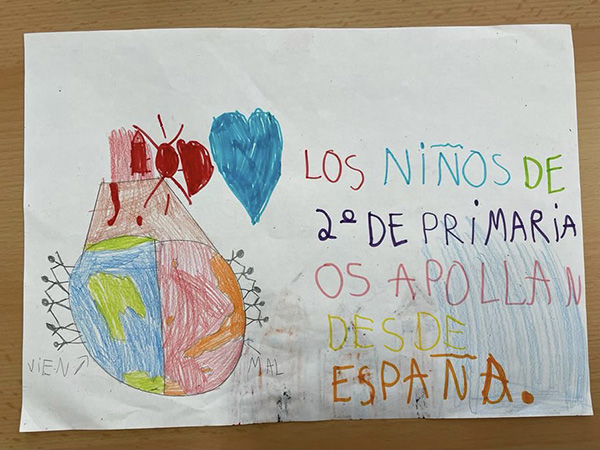 LOS NIÑOS DE
2º DE PRIMARIA
OS APOLLAN
DESDE
ESPAÑA.
VIEN
MAL